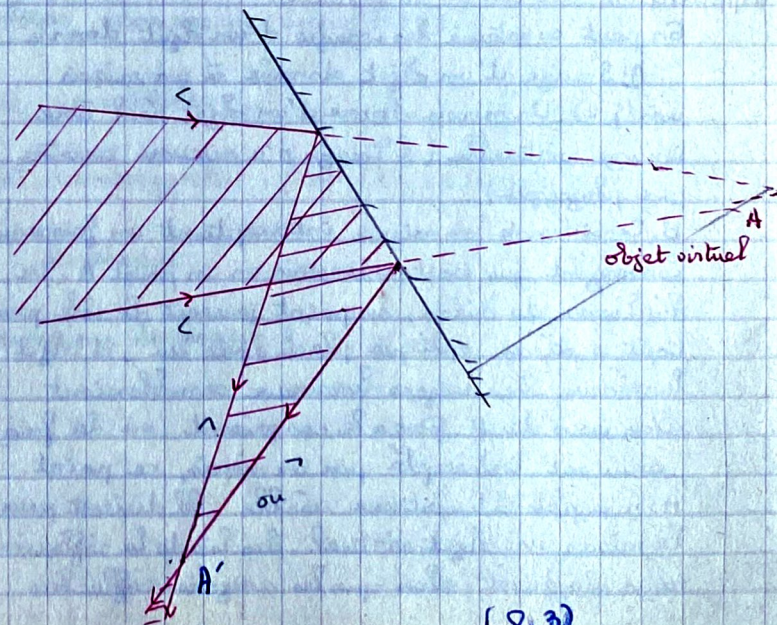 A
objet virtuel
ou
A'